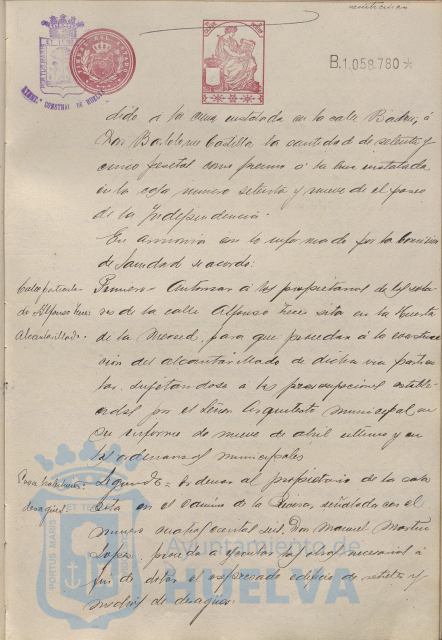 B.1.058.780*
dido a la cruz instalada en la calle Baden, á
Don Bartolome Castilla la cantidad de setenta y
cinco pesetas como premio á la cruz instalada
en la casa numero setenta y nueve de el paseo
de la Independencia.
En armonia con lo informado por la Comision
de Sanidad se acordo:
Calle particular
de Alfonso trece
Alcantarillado.
Primero - Autorizar a los propietarios de los sola-
res de la calle Alfonso trece sita en la Huerta
de la Merced, para que procedan á la construc-
cion del alcantarillado de dicha via particu-
lar, sujetandose a las prescripciones estable-
cidas por el Señor Arquitecto municipal en
su informe de nueve de abril ultimo y en
las ordenanzas municipales
desagües.
Segundo - Ordenar al propietario de la casa
sita en el Camino de la señalada con el
numero Don Manuel Martin
Lopez proceda a ejecutar las obras necesarias á
fin de dotar el expresado edificio de retretes y
medios de desagües.
PORTUS MARIS ET TERRÆ
Ayuntamiento de
HUELVA